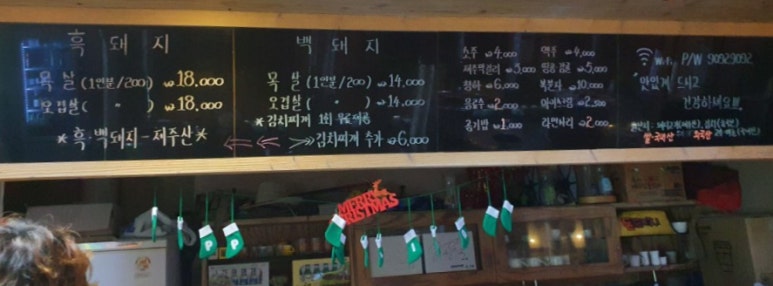 흑 돼지
목 살 (1인분/200g) ₩18,000
오겹살 ( 〃 ) ₩18,000
*흑·백돼지-제주산*
백 돼지
목 살 (1인분/200g) ₩14,000
오겹살 ( 〃 ) ₩14,000
*김치찌개 1회 무료제공
김치찌개 추가 ₩6,000
소주 ₩4,000
제주막걸리 ₩3,000
청하 ₩6,000
음료수 ₩2,000
공기밥 ₩1,000
맥주 ₩4,000
복분자 ₩10,000
아이스크림 ₩2,500
라면사리 ₩2,000
WiFi, P/W 90529092
맛있게 드시고
건강하세요!!!
쌀-국내산
MERRY CHRISTMAS
P
P
I